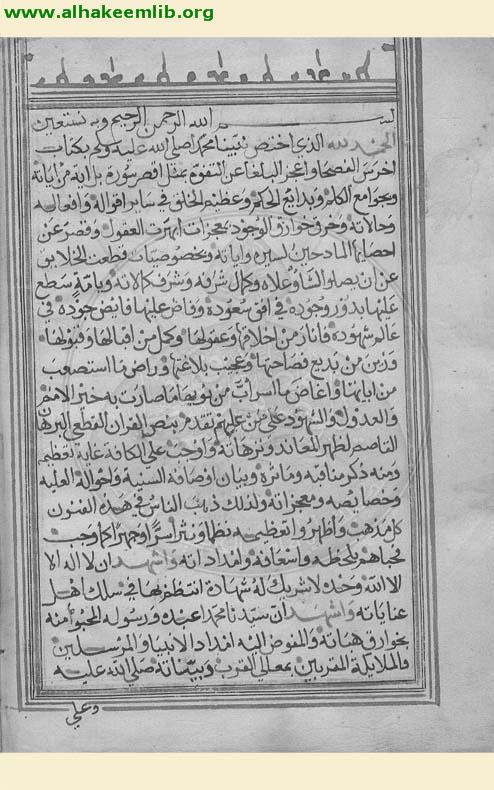 www.alhakeemlib.org
بسم الله الرحمن الرحيم وبه نستعين
الحمد لله الذي اختص نبينا محمدا صلى الله عليه وسلم بكتاب
اخرس الفصحا واعجز البلغا عن التفوه بمثل اقصر سورة بل اية من اياته
وبجوامع الكلم وبدايع الحكم وعظيم الخلق في ساير اقواله وافعاله
وحالاته وخرق خوارق الوجود بمعجزات ابهرت العقول وقصر عن
احصايها المادحين لسيره واياته وبخصوصيات قطعن الخلايق
عن ان يصلوا لشاو علاه وكمال شرفه وشرف كمالاته وبامة سطع
عليها بدور وجوده في افق سعوده وفاض عليها فايض جوده في
عالم شهوده فانار من اخلاقها وعقولها وكمل من اقبالها وقبولها
وزين من بديع فصاحتها وعجيب بلاغتها وراض ما استصعب
من اباتها واغاض ما اسراب من ما صارت به خير الامم
والعدول والشهود على من عليهم تقدم بنص القران القطعي البرهان
الناصع لظهر المعاند وترهاته واوجب على الكافة غاية تعظيم
ومنه ذكر مناقبه وماثره وبيان اوصافه السنيه واحواله العليه
وخصايصه ومعجزاته ولذلك ذهب الناس في هذه الفنون
كل مذهب واظهروا تعظيمه نظما ونثرا سرا وجهرا كما وجب
فحباهم بلحظه واسعافه وامداداته واشهد ان لا اله الا
الا الله وحده لا شريك له شهادة انتظم بها في سلك اهل
عناياته واشهد ان سيدنا محمدا عبده ورسوله المحبو منه
بخوارق هباته والمفوض اليه امداد الانبيا والمرسلين
والملايكة المقربين بمعالي القرب وبيناته صلى الله عليه
وعلى